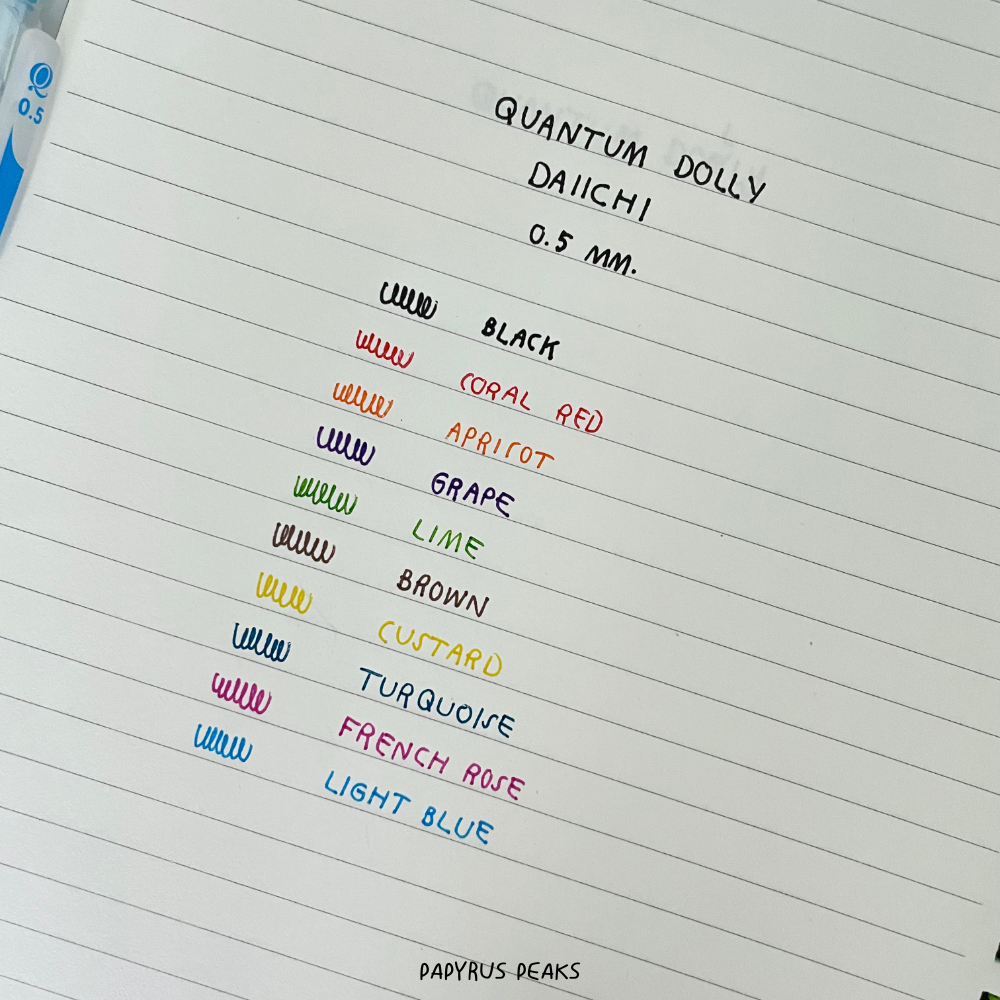 0.5
QUANTUM DOLLY
DAIICHI
0.5 MM.
BLACK
CORAL RED
APRICOT
GRAPE
LIME
BROWN
CUSTARD
TURQUOISE
FRENCH ROSE
LIGHT BLUE
PAPYRUS PEAKS